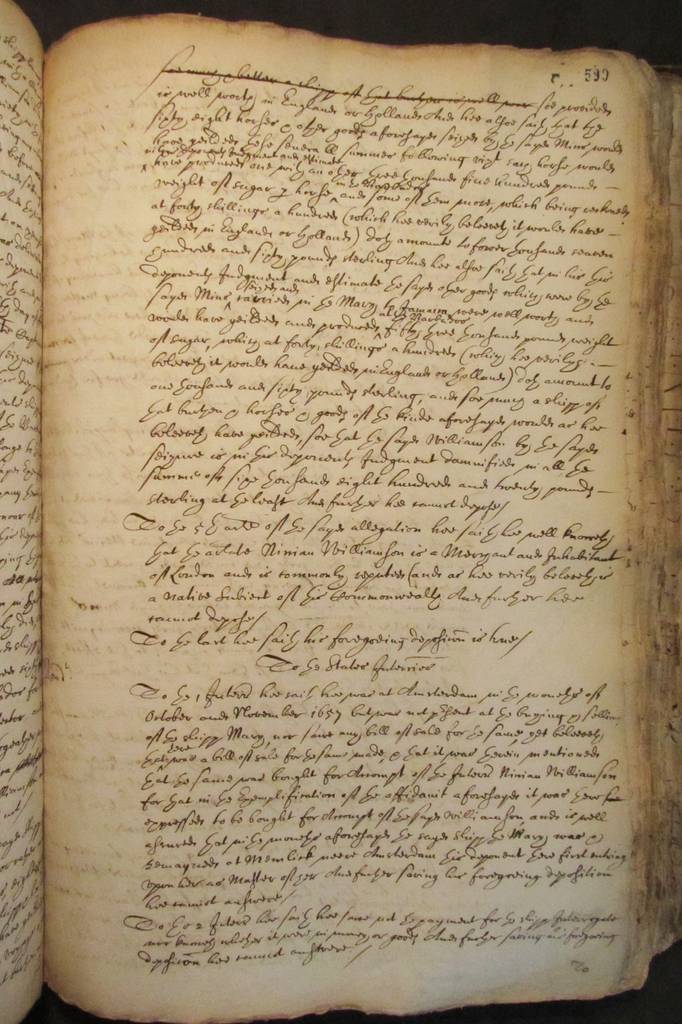 599
soe much a better a shipp of that burthen is well worth soe provided
is well worth in England or Holland And hee alsoe saith that the
sixty eight horses & other goods aforesayd seized by the sayd Mins would
have yeilded the sommer following vizt each horse would
in this deponents Judgment and estimate
have produced one with an other three thousand five hundred pounds
in the Barbados
weight of sugar per horse and some of them more, which being reckoned
at forty shillings a hundred (which hee verily beleeveth it would have
yeilded in England or Holland) doth amount to fower thousand seaven
hundred and sixty pounds sterling And hee alsoe saith that in his this
deponents Judgment and estimate the sayd other goods which were by the
seized and
sayd Mins carried in the Mary to Jamaica were well worth and
at the Barbados
would have yeilded and produced fifty three thousand pounds weight
of sugar, which at forty shillings a hundred (which hee verily
beleeveth it would have yeilded in England or Holland) doth amount to
one thousand and sixty pounds sterling, and soe much a shipp of
that burthen & horses & goods of the kinde aforesayd would as hee
beleeveth have yeilded, soe that the sayd Williamson by the sayd
seizure is in his deponents Judgment damnified in all the
summe of sixe thousand eight hundred and twenty pounds
sterling at the least And further hee cannot depose/
To the 5th arle of the sayd allegation hee saith hee well knoweth
that the arlate Ninian Williamson is a Merchant and Inhabitant
of London and is commonly reputed (and as hee verily beleeveth is
a native Subject of this Commonwealth And further hee
cannot depose/
To the last hee saith his foregoeing deposicon is true/
To the States Interries
To the 1 Interrie hee saith hee was at Amsterdam in the moneths of
October and November 1657 but was not present at the buying & selling
of the shipp Mary, nor sawe any bill of sale for the same yet beleeveth
there
that was a bill of sale for the same made, & that it was therein mentioned
that the same was bought for Accompt of the Interrate Ninian Williamson
for that in the Exemplification of the affidavit aforesayd it was there
expressed to be bought for Accompt of the sayd Williamson and is well
assured that in the moneths aforesayd the sayd shipp the Mary was &
remayned at Memlick neere Amsterdam this deponent there first entring
upon her as Master of her And further saving his foregoeing deposition
hee cannot answere/
To the 2 Interrie hee saith hee sawe not the payment for the shipp Interrogate
nor knoweth whether it were in money or goods And further saving his foregoeing
deposicon hee cannot answere/
To